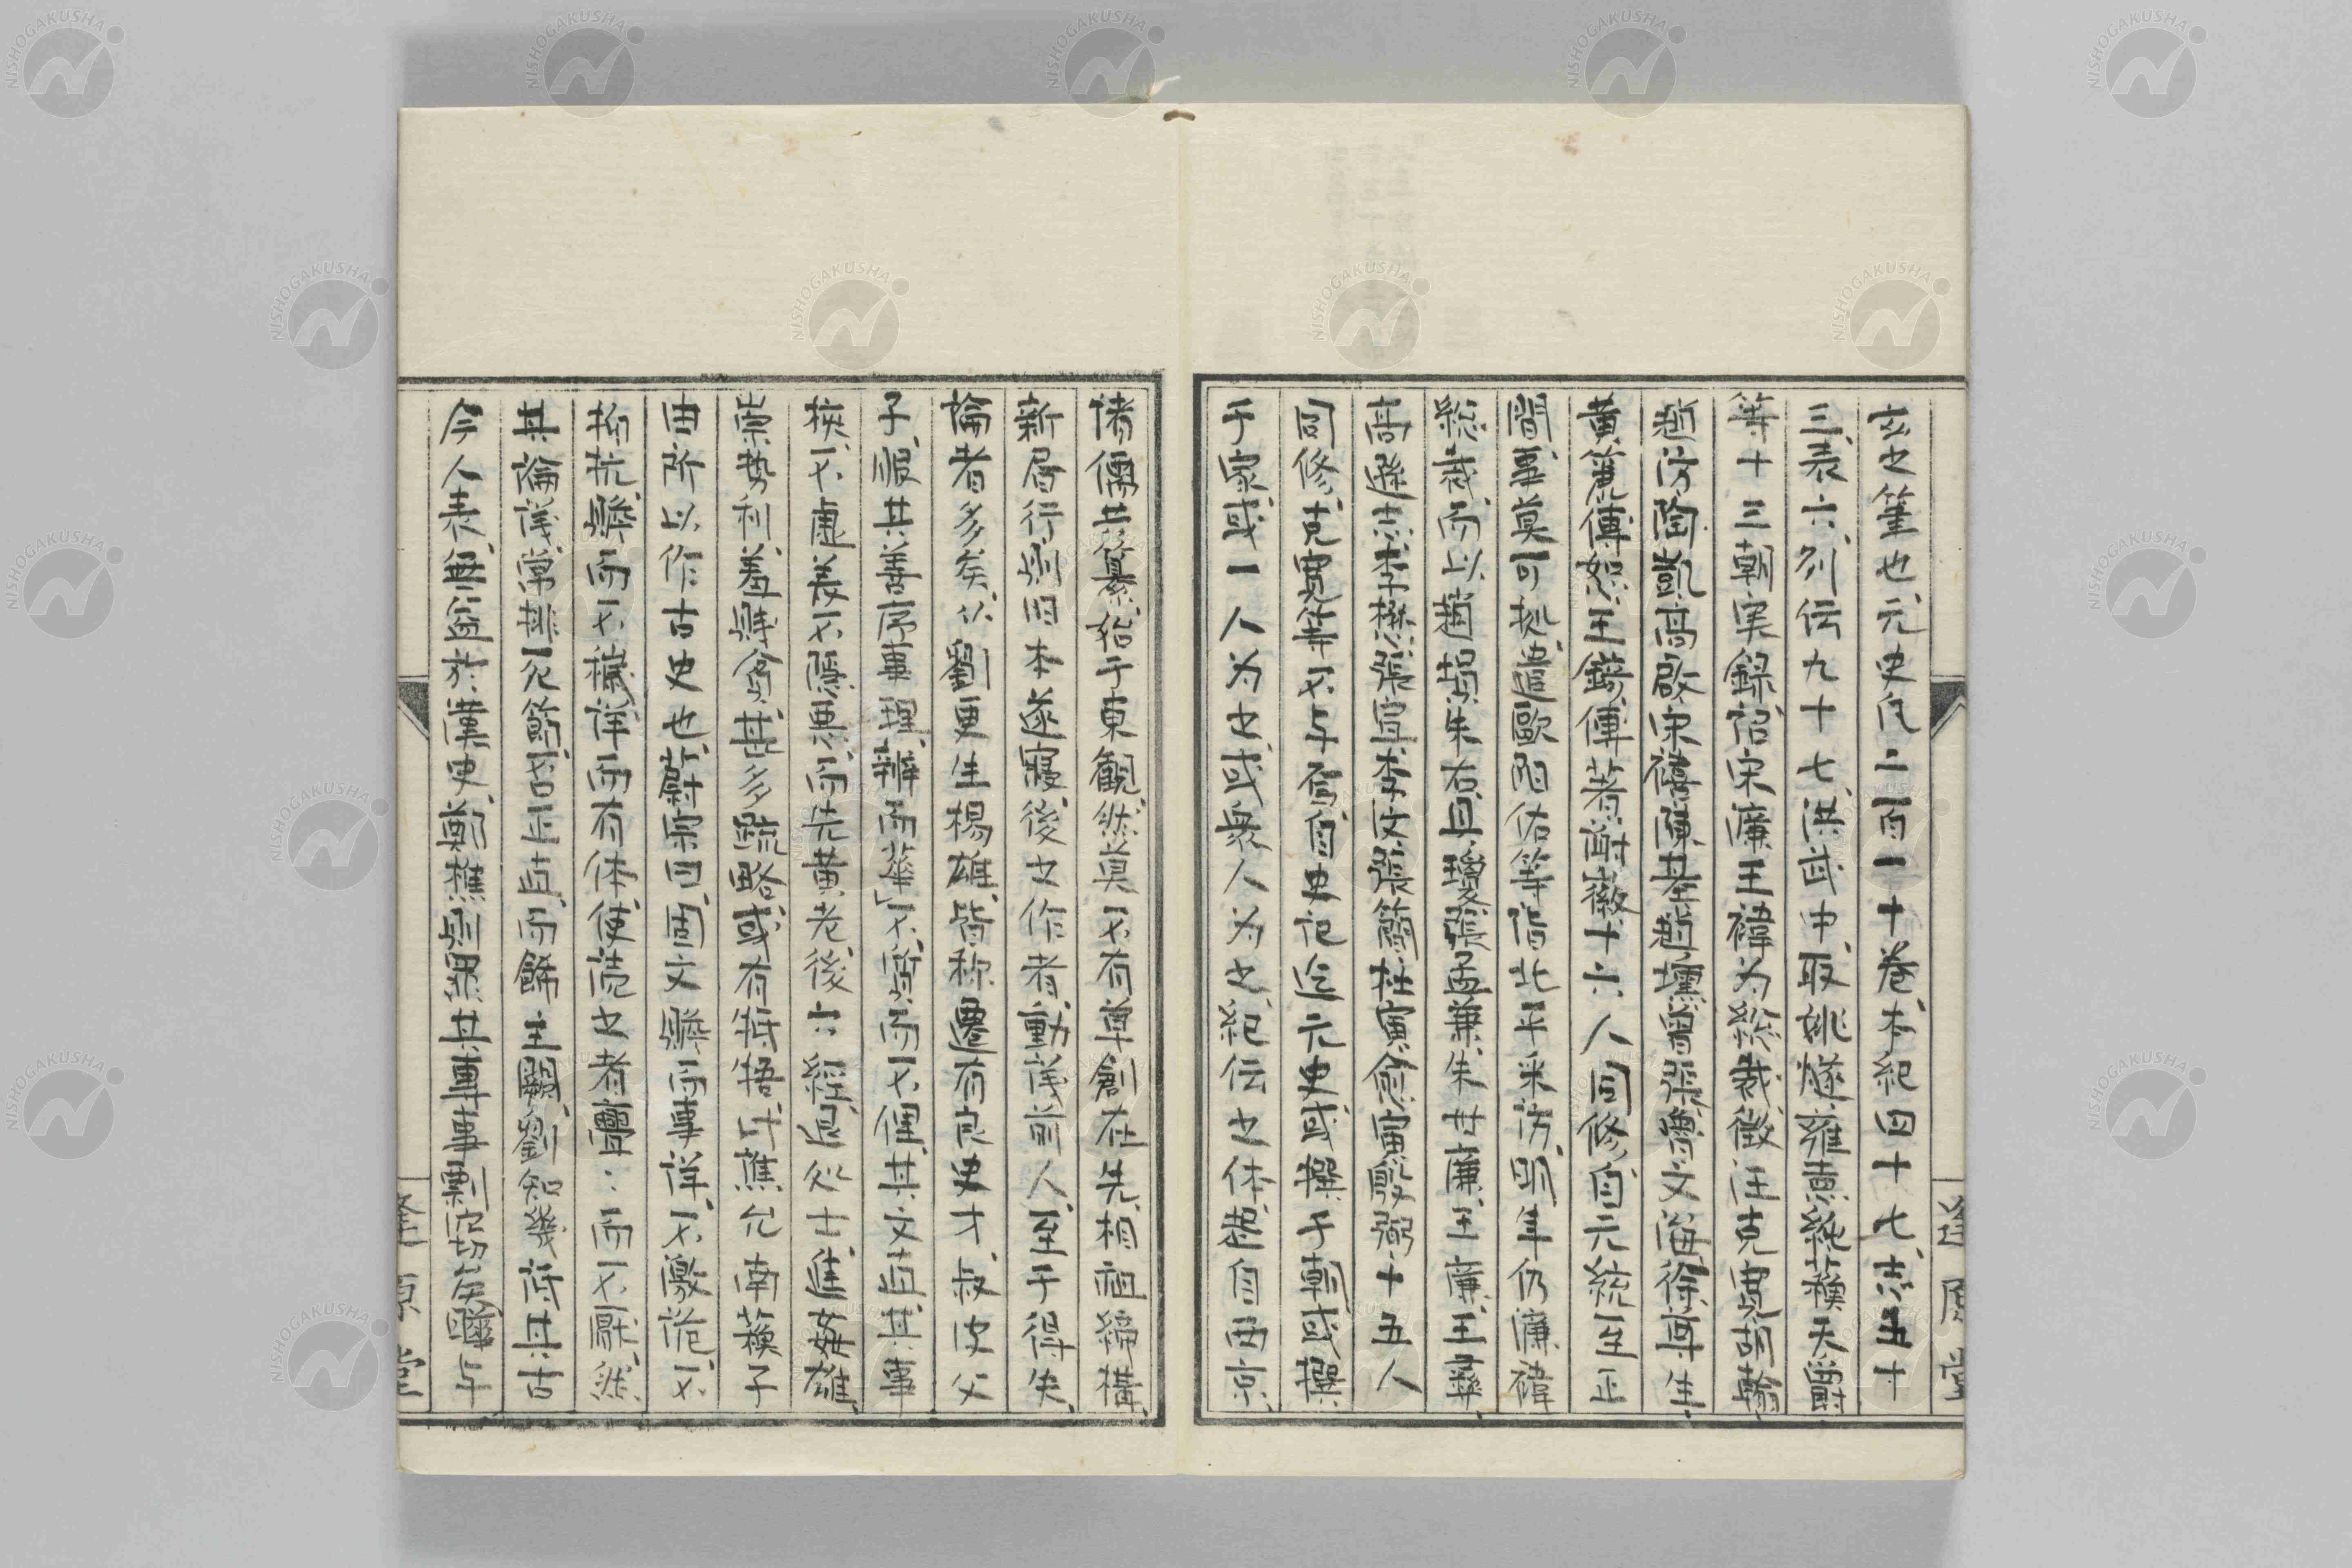 玄之筆也、元史凡二百一十卷、本紀四十七、志五十
三、表六、列伝九十七、洪武中、取姚燧雍虞純蘓天爵
等十三朝実録、詔宋濂王禕为総裁、徴汪克寛胡翰
趙汸陶凱高啟宋禧陳基趙壎曾張魯文海徐尊生
黄箎傅恕王錡傅著謝徽十六人同修、自元統至正
間事莫可拠、遣歐陽佑等皆北平采訪、明年仍濂禕
総裁、而以趙塤朱右貝瓊張孟兼朱世廉王廉王彝
高遜志李懋張宣李汶張簡杜寅愈寅殷弼十五人
同修、克寛等不与焉、自史記迄元史、或撰于朝、或撰
于家、或一人为之、或衆人为之、紀伝之体、起自西京
諸儒共纂、始于東観、然莫不有草創在先、相祖締構
新局行、則旧本遂寢、後之作者、動議前人、至于得失
論者多矣、以劉更生楊雄、皆称遷有良史才、叔皮父
子、服其善序事理、辨而華、不質而不俚、其文直、其事
核、不虚美、不隠悪、而先黄老、後六経、退処士、進姦雄
崇勢利、羞賤貧、甚多疏略、或有牾牾、此蕉允南蘓子
由所以作古史也、蔚宗曰、固文贍而事詳、不激詭、不
抑抗、贍而不穢、詳而有体、使読之者亹〻而不厭、然
其論議、常排死節、否正直、而餙主闕、劉知幾譏其古
今人表、無益於漢史、鄭樵則罪其専事剽窃、矣曄与
逢原堂
NISHOGAKUSHA